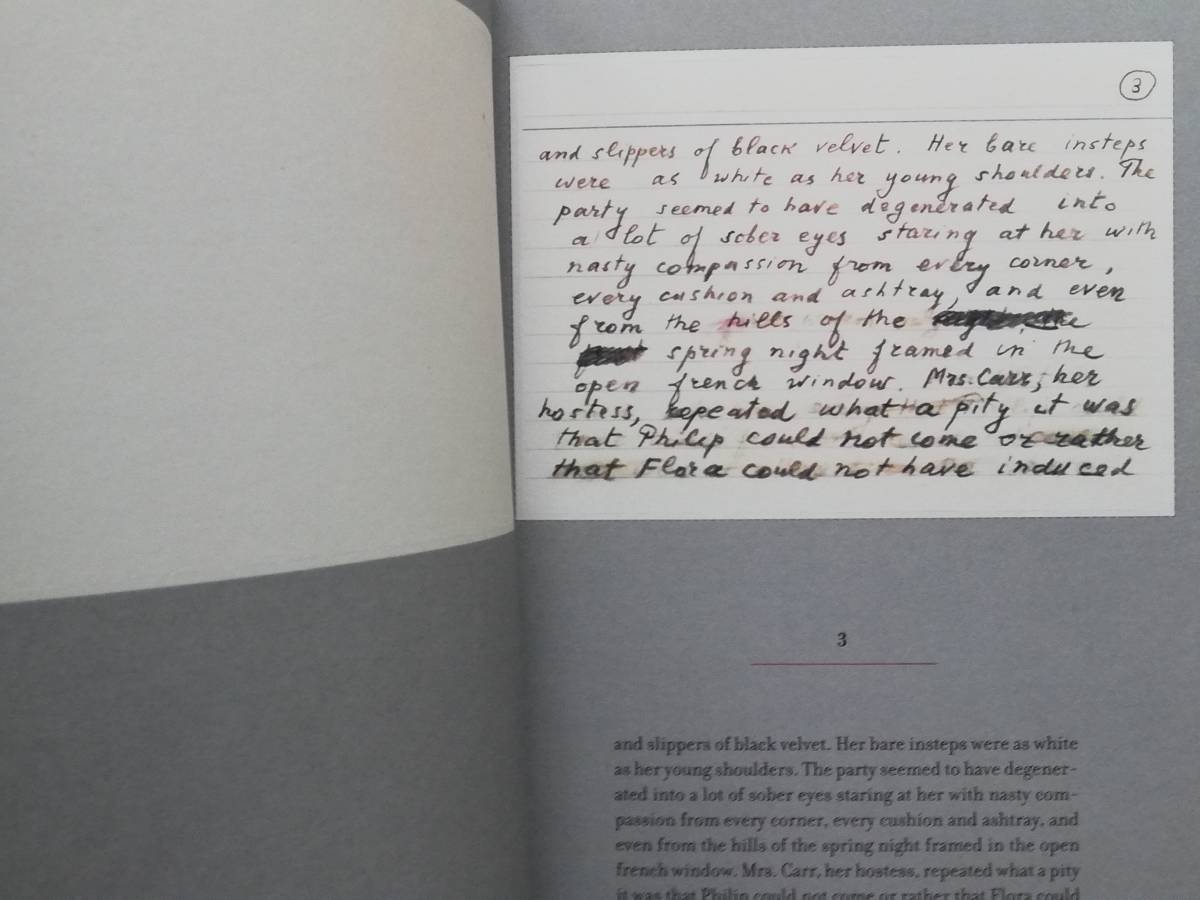 3
and slippers of black velvet. Her bare insteps
were as white as her young shoulders. The
party seemed to have degenerated into
a lot of sober eyes staring at her with
nasty compassion from every corner,
every cushion and ashtray, and even
from the hills of the
spring night framed in the
open french window. Mrs. Carr, her
hostess, repeated what a pity it was
that Philip could not come or rather
that Flora could not have induced
3
and slippers of black velvet. Her bare insteps were as white
as her young shoulders. The party seemed to have degener-
ated into a lot of sober eyes staring at her with nasty com-
passion from every corner, every cushion and ashtray, and
even from the hills of the spring night framed in the open
french window. Mrs. Carr, her hostess, repeated what a pity
it was that Philip could not come or rather that Flora could